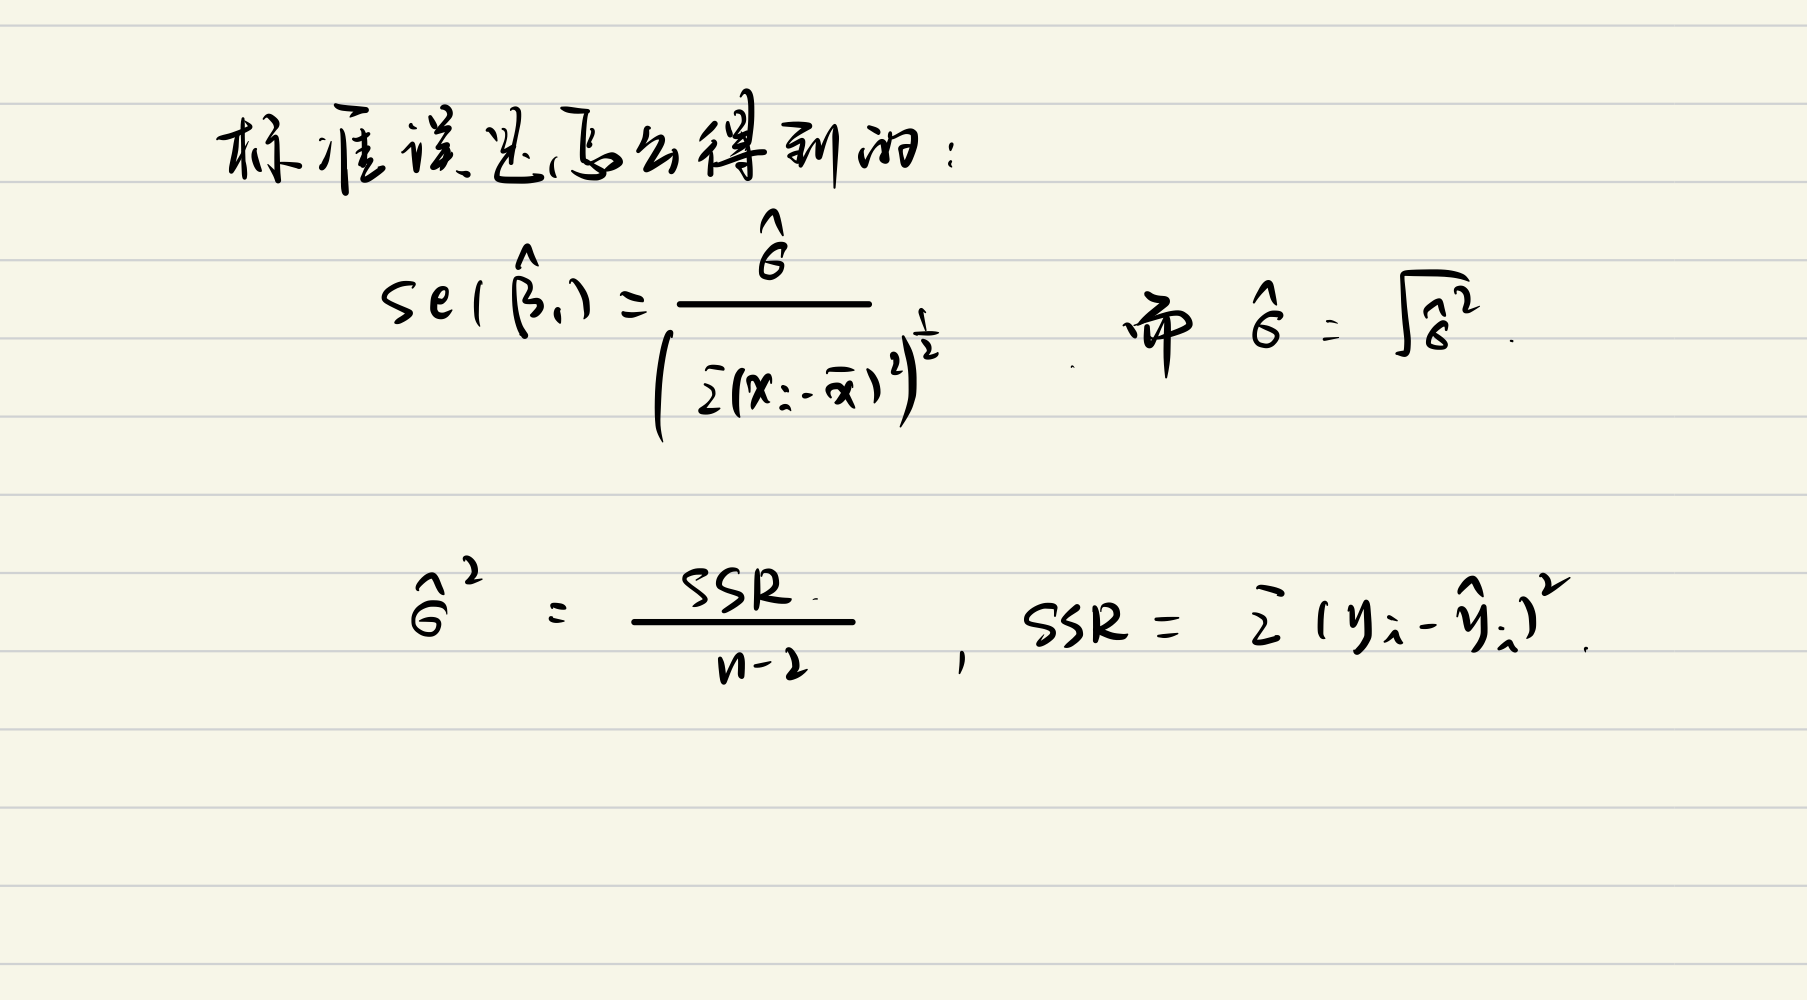 标准误是怎么得到的：
se(β̂₁) = σ̂ / (Σ(xᵢ-x̄)²)^½ . 而 σ̂ = √σ̂² .
σ̂² = SSR / n-2 , SSR = Σ(yᵢ-ŷᵢ)² .